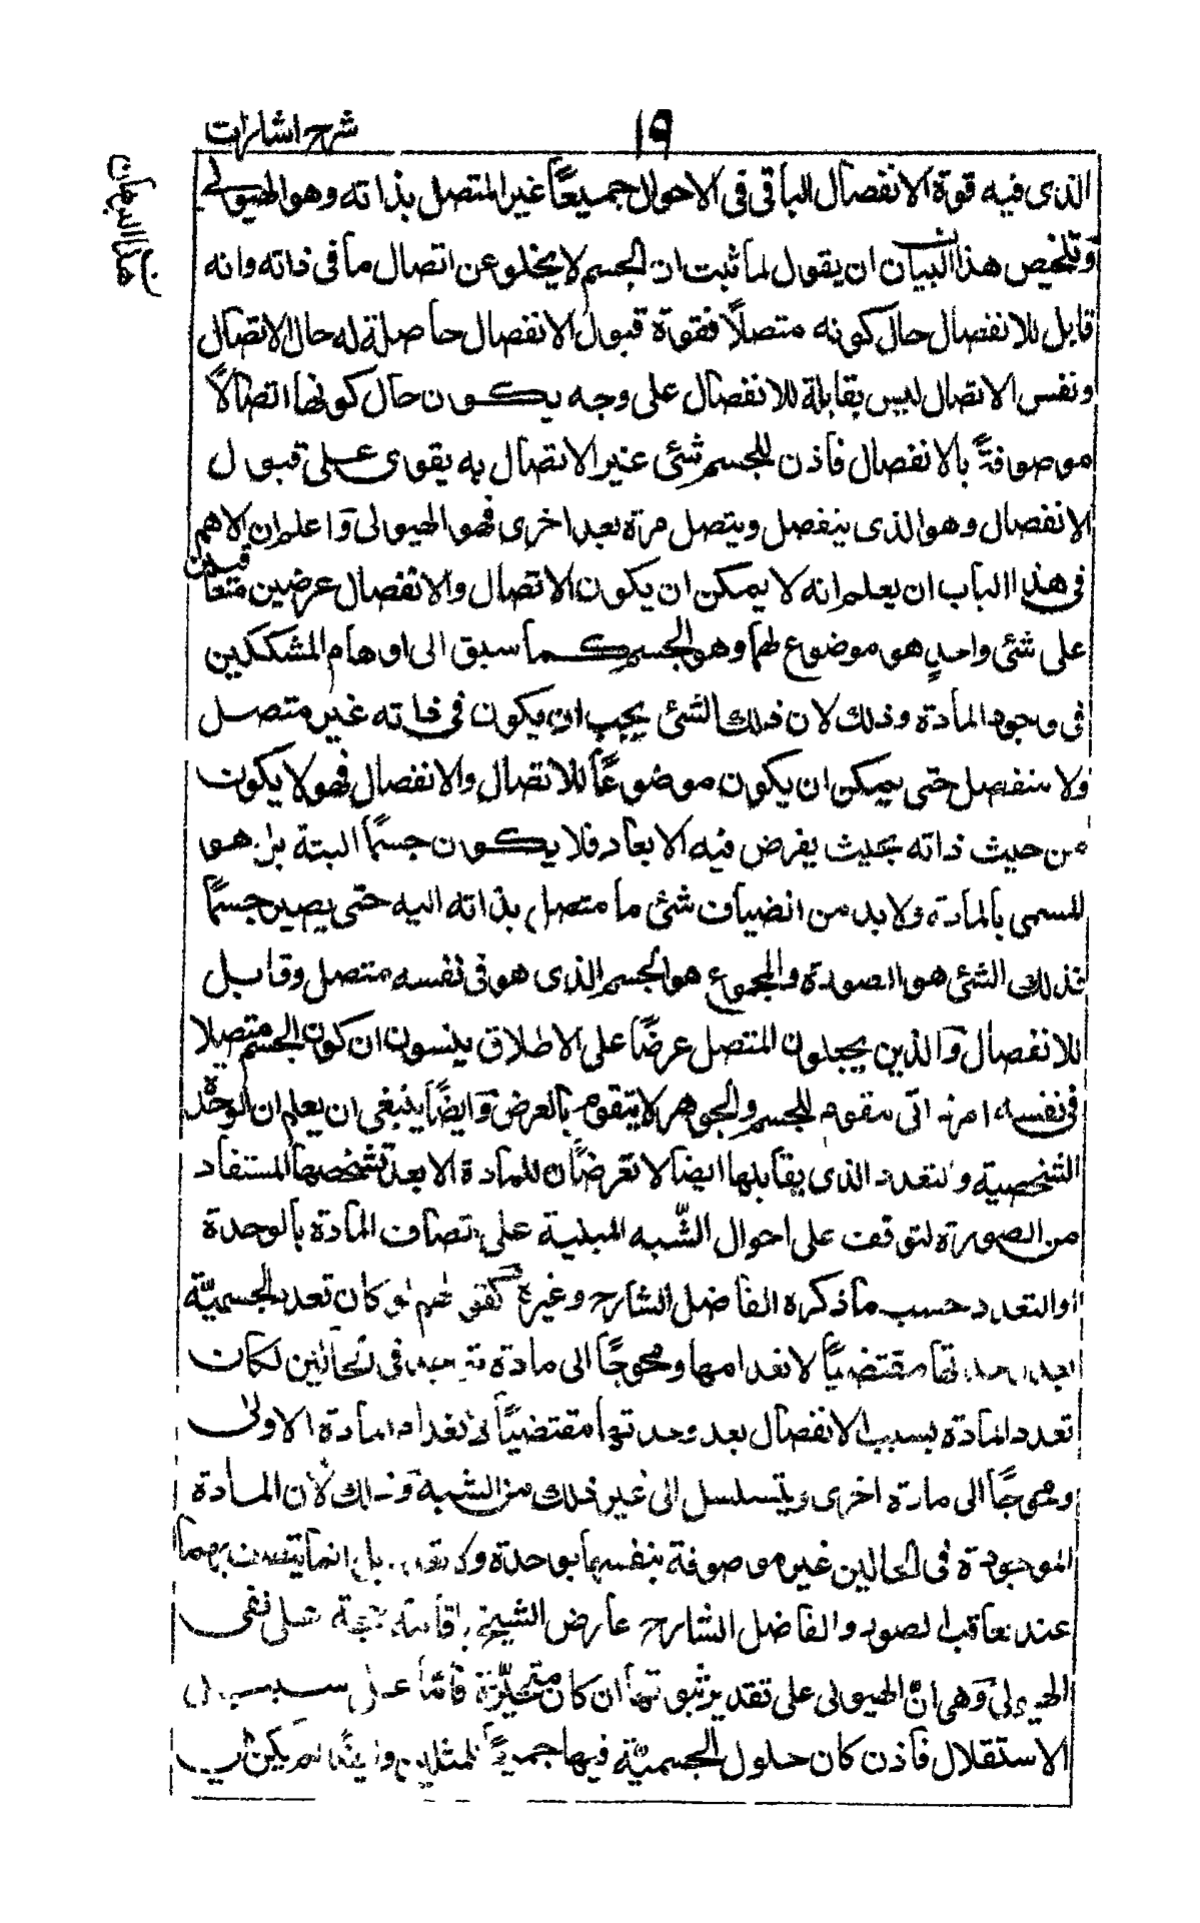 ١٩
شرح اشارات
الذی فیه قوة الانفصال الباقی فی الاحوال جمیعًا غیر المتصل بذاته وهو الهیولی
وتلخیص هذا البیان ان یقول لما ثبت ان الجسم لا یخلو عن اتصال ما فی ذاته وانه
قابل للانفصال حال کونه متصلًا فقوة قبول الانفصال حاصلة له حال الاتصال
ونفس الاتصال لیس بقابلة للانفصال علی وجه یکون حال کونها اتصالًا
موصوفةً بالانفصال فاذن للجسم شئ غیر الاتصال به یقوی علی قبول
الانفصال وهو الذی ینفصل ویتصل مرة بعد اخری فهو الهیولی واعلم ان الاهم
فی هذا الباب ان یعلم انه لا یمکن ان یکون الاتصال والانفصال عرضین متعاقبین
علی شئ واحدٍ هو موضوع لهما وهو الجسم کما سبق الی اوهام المشککین
فی وجود المادة وذلک لان ذلک الشئ یجب ان یکون فی ذاته غیر متصل
ولا منفصل حتی یمکن ان یکون موضوعًا للاتصال والانفصال فهو لا یکون
من حیث ذاته بحیث یفرض فیه الابعاد فلا یکون جسمًا البتة بل هو
المسمی بالمادة ولا بد من انضیاف شئ ما متصل بذاته الیه حتی یصیر جسمًا
فذلک الشئ هو الصورة والمجموع هو الجسم الذی هو فی نفسه متصل وقابل
للانفصال والذین یجعلون المتصل عرضًا علی الاطلاق ینسون ان کون الجسم متصلا
فی نفسه امر ذاتی مقوم للجسم والجوهر لا یتقوم بالعرض وایضًا ینبغی ان یعلم ان الوحدة
الشخصیة والتعدد الذی یقابلها ایضا لا تعرضان للمادة الا بعد تشخصها المستفاد
من الصورة لتوقف علی احوال الشّبه المبنیة علی اتصاف المادة بالوحدة
او التعدد حسب ما ذکره الفاضل الشارح وغیره کقولهم لو کان تعدد الجسمیّة
بعد وحدتها مقتضیًا لانعدامها ومحوجًا الی مادة فی الحالین لکان
تعدد المادة بسبب الانفصال بعد وحدتها مقتضیًا لانعدام المادة الاولی
ومحوجًا الی مادة اخری ویتسلسل الی غیر ذلک من الشبه وذلک لان المادة
الموجودة فی الحالین غیر موصوفة بنفسها بوحدة ولا تعدد بل انما یتصف بهما
عند تعاقب الصور والفاضل الشارح عارض الشیخ باقامة حجة علی نفی
الهیولی وهی انّ الهیولی علی تقدیر ثبوتها ان کان متحیّزة قائمًا علی سبیل
الاستقلال فاذن کان حلول الجسمیّة فیها جمعًا للمثلین وایضًا لم یکن